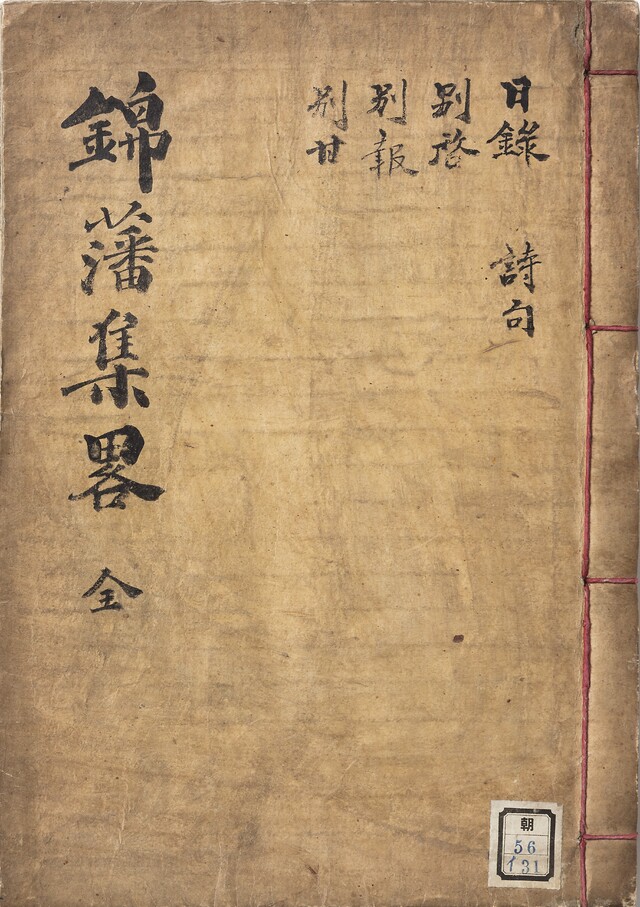 日錄 詩句
別啓
別報
別甘
錦藩集畧 全
朝
56
イ31